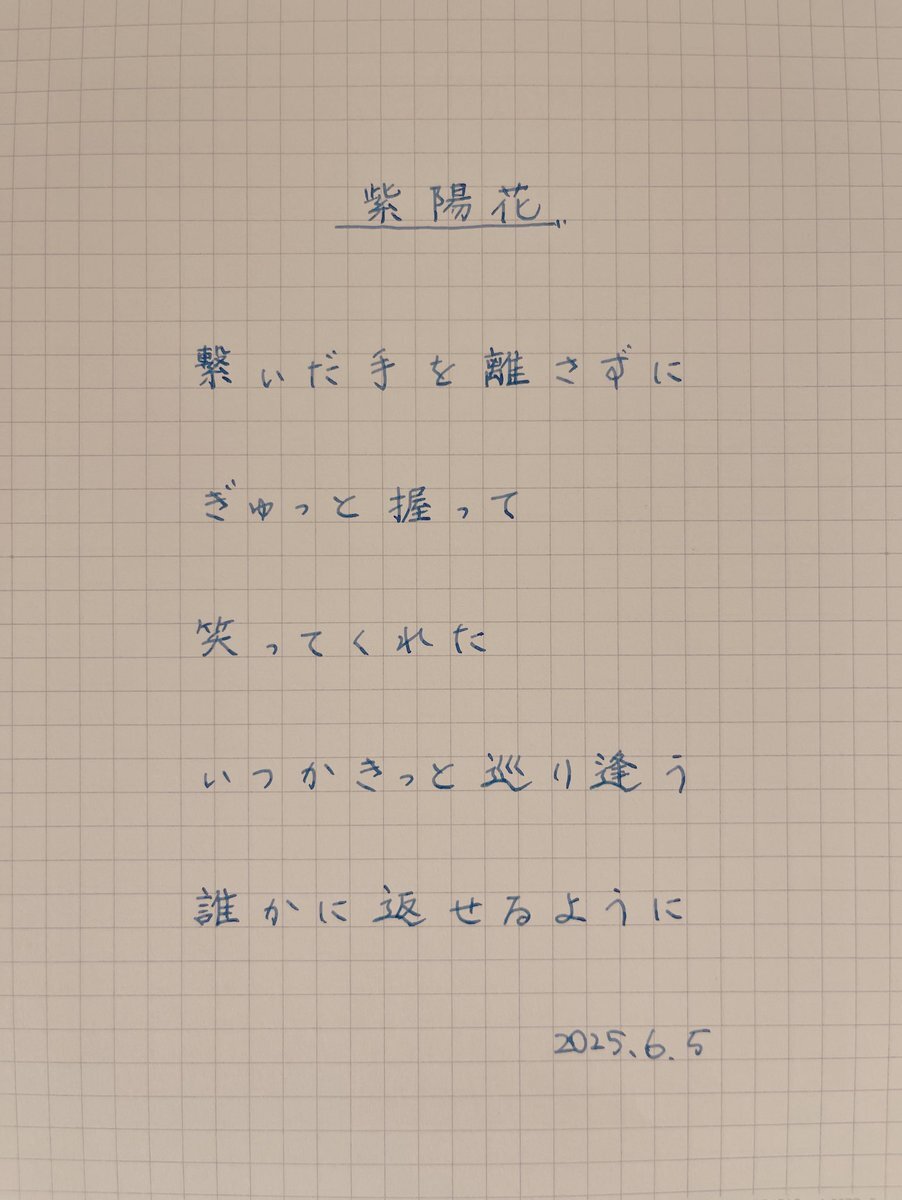 紫陽花
繋いだ手を離さずに
ぎゅっと握って
笑ってくれた
いつかきっと巡り逢う
誰かに返せるように
2025.6.5